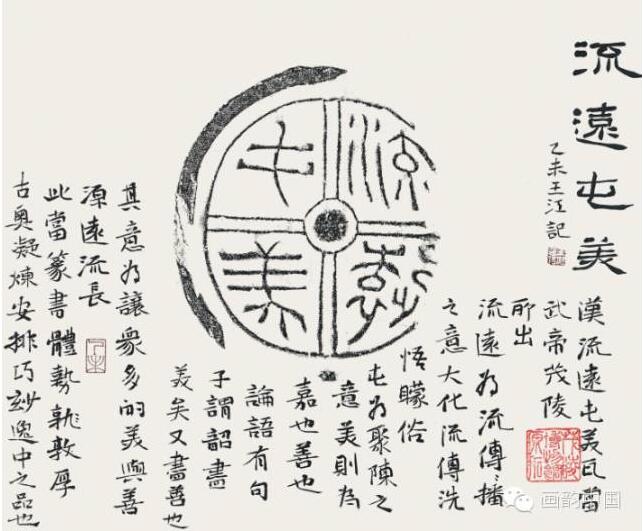 流遠屯美
乙未王江記
流遠
屯美
漢流遠屯美瓦當
武帝茂陵
所出
流遠為流傳播
之意大化流傳洗
悟矇俗
屯為聚陳之
意美則為
嘉也善也
論語有句
子謂韶盡
美矣又盡善也
其意為讓眾多的美與善
源遠流長
此當篆書體勢敦厚
古奧凝煉安排巧妙逸中之品也
画韵中国